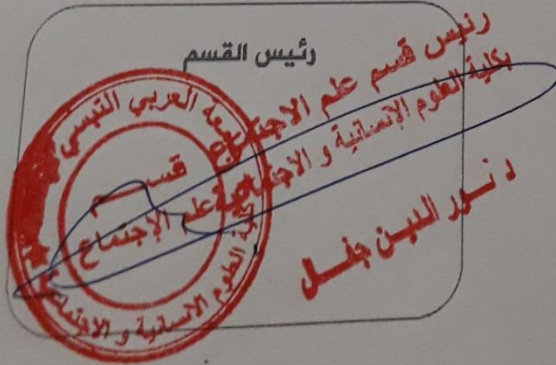 رئيس القسم
رئيس قسم علم الاجتماع
بكلية العلوم الإنسانية و الاجتماعية
د نور الدين جفال
جامعة العربي التبسي
قسم
علم الإجتماع
كلية العلوم الانسانية و الاجتماعية